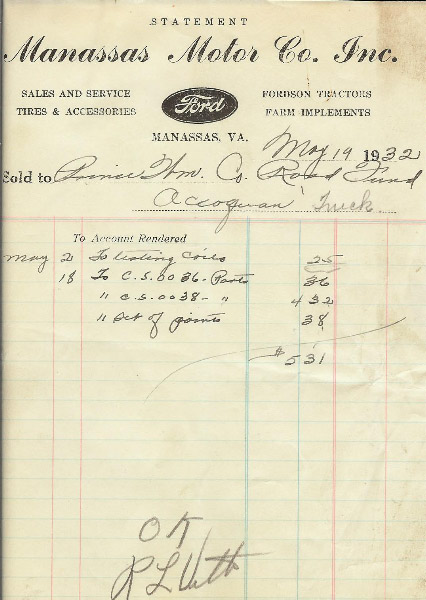 STATEMENT
Manassas Motor Co. Inc.
SALES AND SERVICE
TIRES & ACCESSORIES
Ford
FORDSON TRACTORS
FARM IMPLEMENTS
MANASSAS, VA.
May 19 1932
Sold to Prince Wm. Co. Road Fund
Occoquan Truck
To Account Rendered
May 2 To testing coils 25
18 To C.S. 0036 - Parts 36
" C.S. 0038 - " 4 32
" Set of points 38
$ 5 31
OK
R L